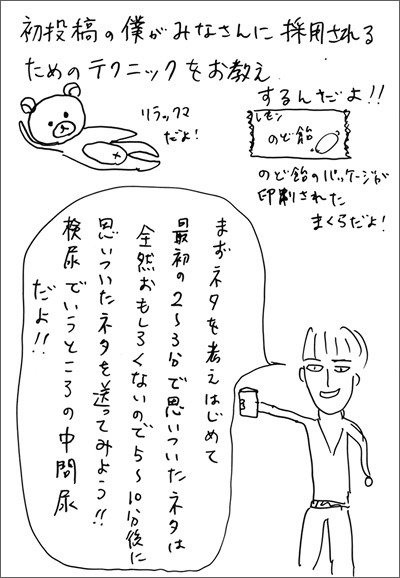 初投稿の僕がみなさんに採用される
ためのテクニックをお教え
するんだよ!!
リラックマ
だよ!
レモン
のど飴
のど飴のパッケージが
印刷された
まくらだよ!
まずネタを考えはじめて
最初の2〜3分で思いついたネタは
全然おもしろくないので5〜10分後に
思いついたネタを送ってみよう!!
検尿でいうところの中間尿
だよ!!